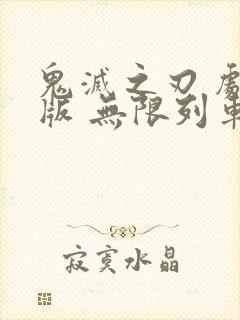 鬼滅之刃 
版 無限列
寂寞水晶